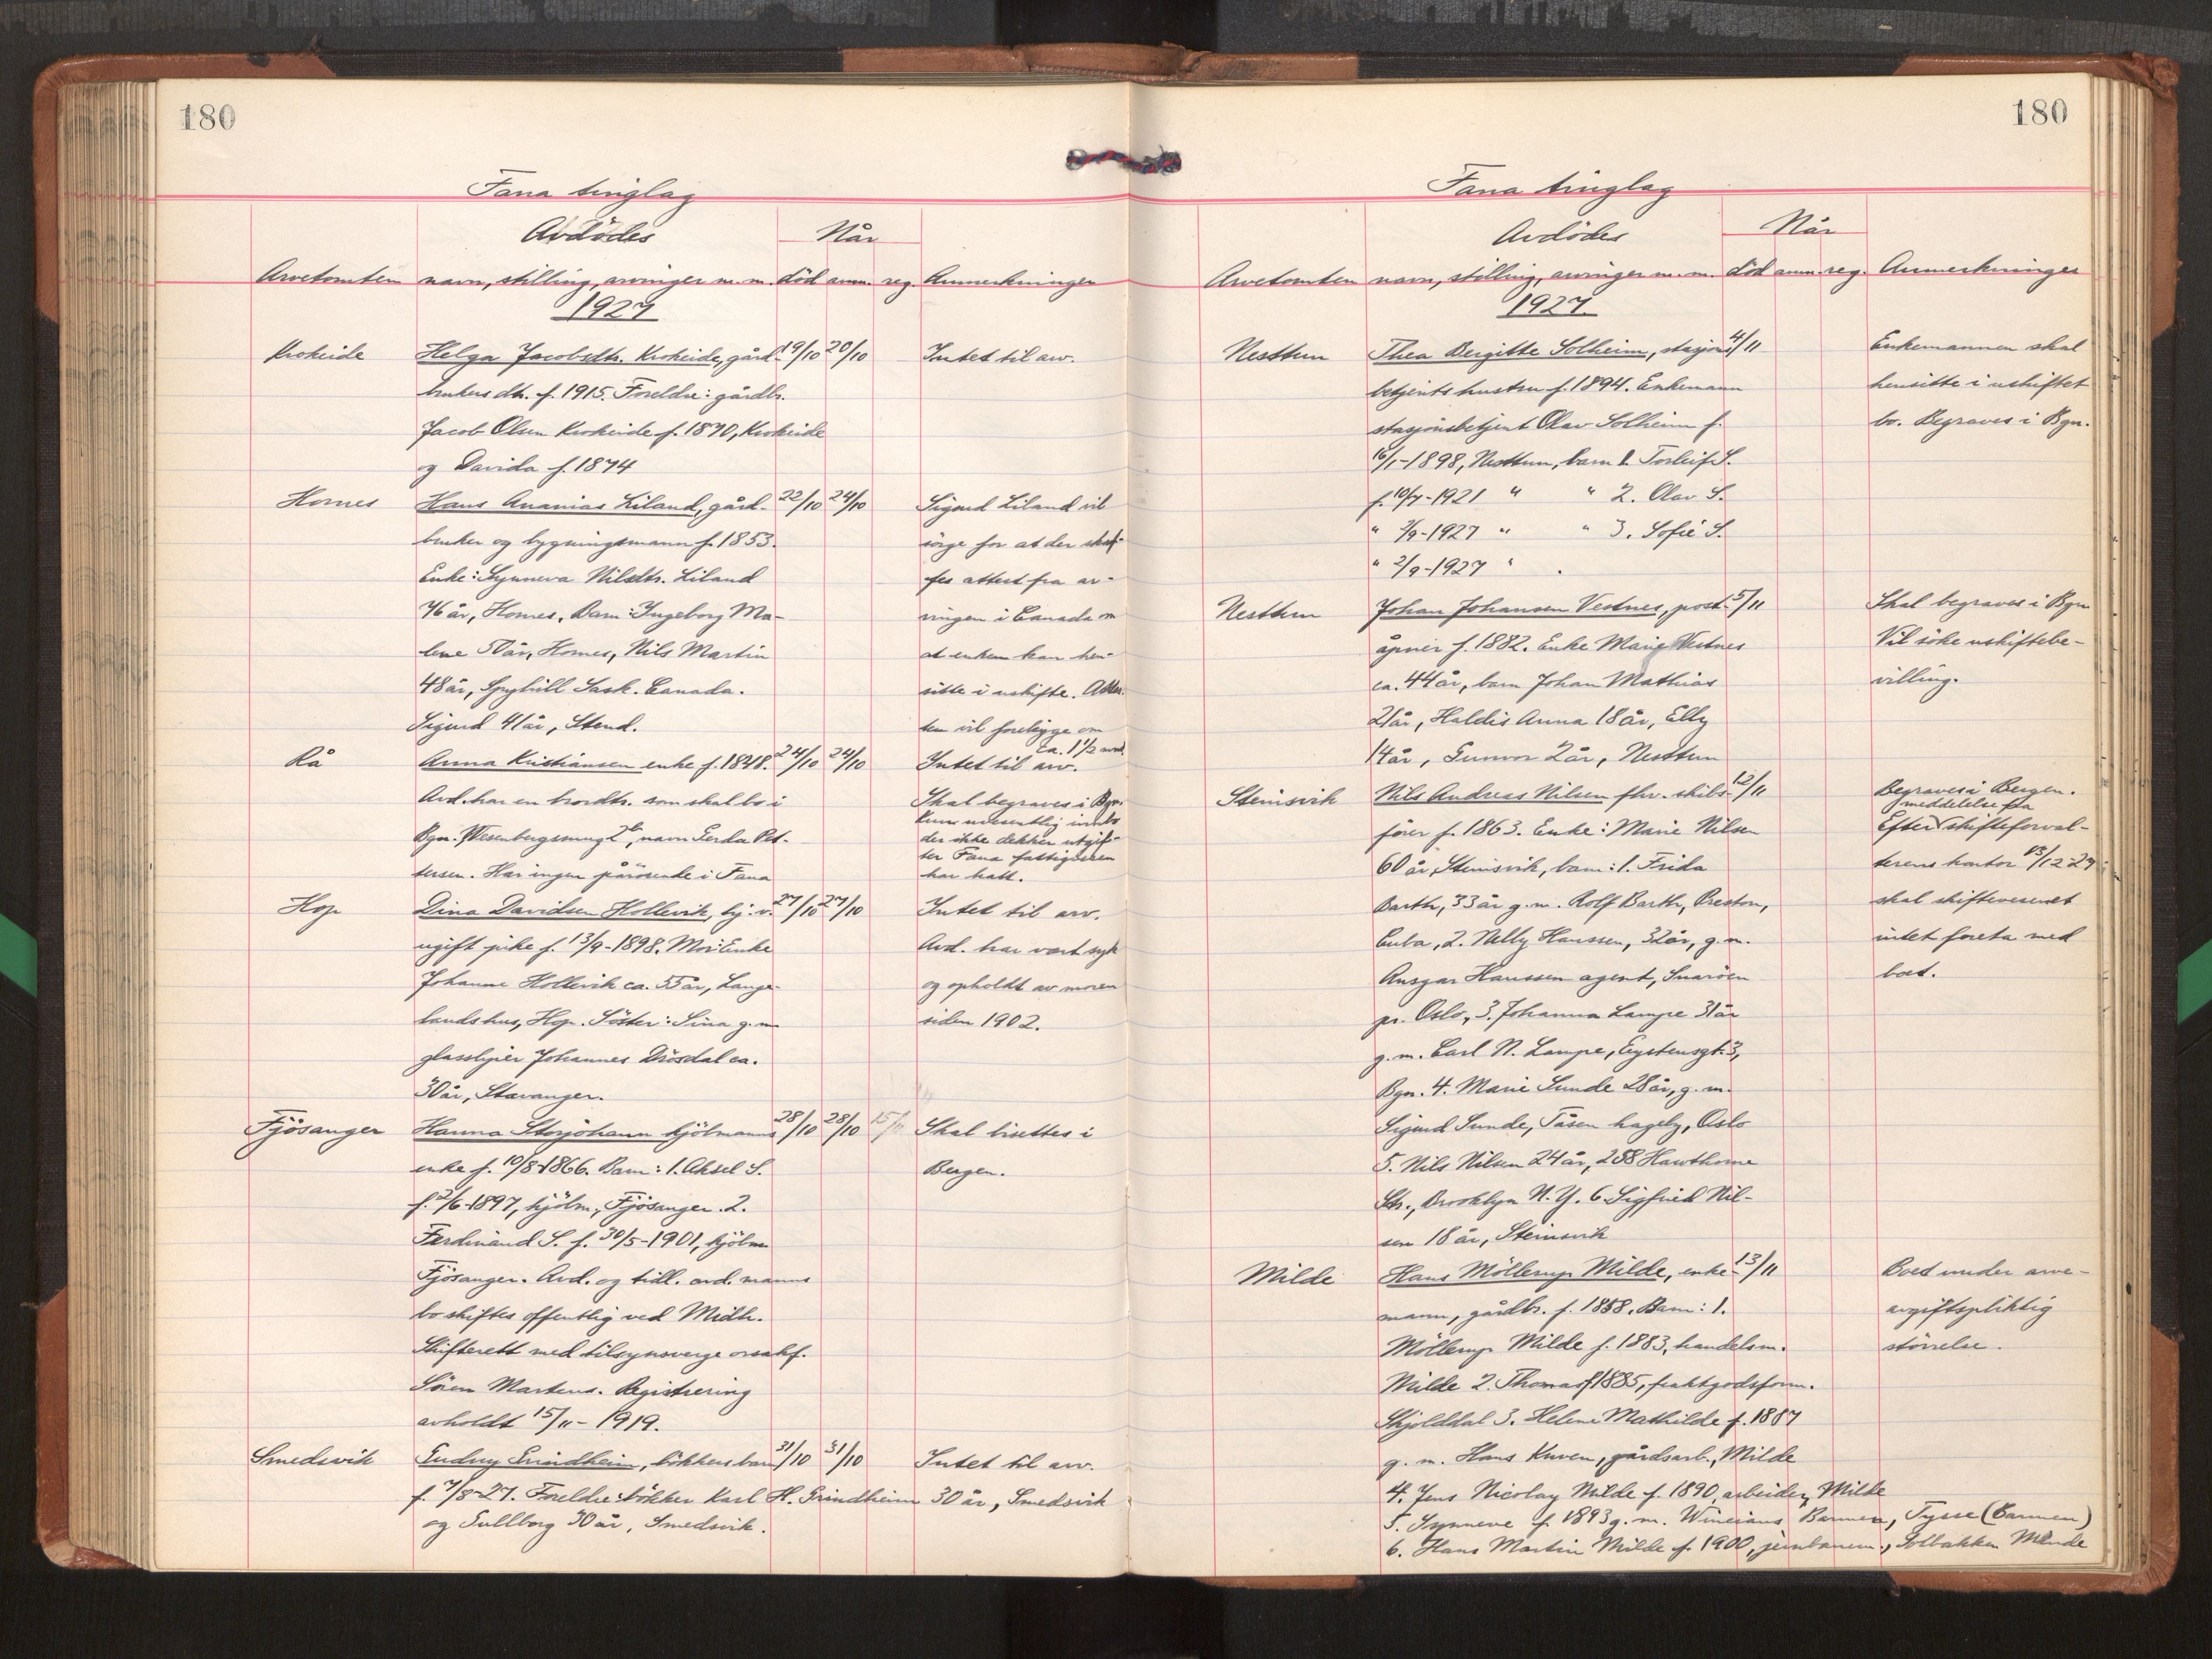 180
Fana tinglag
Avdödes
Når
Arvetomten navn, stilling, arvinger m. m. död anm. reg. Anmerkninger
1927
Krokeide Helga Jacobsdtr. Krokeide, gård- 19/10 20/10 Intet til arv.
brukers dtr. f. 1915. Foreldre: gårdbr.
Jacob Olsen Krokeide f. 1870, Krokeide
og Davida f. 1874
Homes Hans Ananias Liland, gård- 22/10 24/10 Sigurd Liland vil
bruker og bygningsmann f. 1853. sörge for at der skaf-
Enke: Synneva Nilsdtr. Liland fes attest fra ar-
76 år, Homes. Barn: Ingeborg Ma- vingen i Canada om
lene 50 år, Homes, Nils Martin at enken kan hen-
48 år, Spyhill Sask. Canada. sitte i uskifte. Attes-
Sigurd 41 år, Stend. ten vil foreligge om
ca. 1 1/2 mnd.
Rå Anna Kristiansen enke f. 1848. 24/10 24/10 Intet til arv.
Avd. har en brordtr. som skal bo i Skal begraves i Bgn.
Bgn. Wesenbergsmug 2b, navn Gerda Pet- Kun uvesentlig innbo
der ikke dekker utgif-
ter Fana fattigvesen
tersen. Har ingen pårörende i Fana har hatt.
Hop Dina Davidsen Hollevik, hj. v. 27/10 27/10 Intet til arv.
ugift pike f. 13/9-1898. Mor: Enke Avd. har vært syk
Johanne Hollevik ca. 55 år, Lange- og opholdt av moren
landshus, Hop. Söster: Sina g. m. siden 1902.
glassliper Johannes Drösdal ca.
30 år, Stavanger.
Fjösanger Hanna Storjohann kjölmanns 28/10 28/10 15/11 Skal bisettes i
enke f. 10/8-1866. Barn: 1. Aksel S. Bergen.
f. 2/6-1897, kjölm., Fjösanger. 2.
Ferdinand S. f. 30/5-1901, kjölm.
Fjösanger. Avd. og tidl. avd. manns
bo skiftes offentlig ved Midh.
Skifterett med tilsynsverge orsakf.
Sören Martens. Registrering
avholdt 15/11-1919.
Smedsvik Gudny Grindheim, bökkers barn 31/10 31/10 Intet til arv.
f. 7/8-27. Foreldre: bökker Karl H. Grindheim 30 år, Smedsvik
og Gullborg 30 år, Smedsvik.
180
Fana tinglag
Avdödes
Når
Arvetomten navn, stilling, arvinger m. m. död anm. reg. Anmerkninger
1927.
Nesttun Thea Bergitte Solheim, stasjons- 4/11 Enkemannen skal
betjents hustru f. 1894. Enkemann hensitte i uskiftet
stasjonsbetjent Olav Solheim f. bo. Begraves i Bgn.
16/1-1898, Nesttun, barn 1. Torleif S.
f. 10/7-1921 " " 2. Olav S.
" 2/9-1927 " " 3. Sofie S.
" 2/9-1927 " .
Nesttun Johan Johansen Vestnes, post- 5/11 Skal begraves i Bgn
åpner f. 1882. Enke Marie Vestnes Vil söke uskiftebe-
ca. 44 år, barn Johan Mathias villing.
21 år, Haldis Anna 18 år, Elly
14 år, Gunvor 2 år, Nesttun
Steinsvik Nils Andreas Nilsen fhv. skibs- 12/11 Begraves i Bergen.
meddelelse fra
förer f. 1863. Enke: Marie Nilsen Efter skifteforval-
60 år, Steinsvik, barn: 1. Frida terens kontor 13/12 27
Barth, 33 år g. m. Rolf Barth, Preston, skal skiftevesenet
Cuba, 2. Nelly Hanssen, 32 år, g. m. intet foreta med
Ansgar Hanssen agent, Snaröen boet.
pr. Oslo, 3. Johanna Lampe 31 år
g. m. Carl N. Lampe, Eystensgt. 3,
Bgn. 4. Marie Sunde 28 år, g. m.
Sigurd Sunde, Tåsen hageby, Oslo
5. Nils Nilsen 24 år, 288 Hawthorne
Str., Brooklyn N. Y. 6. Sigfried Nil-
sen 18 år, Steinsvik
Milde Hans Möllerup Milde, enke- 13/11 Boet under arve-
mann, gårdbr. f. 1858. Barn: 1. avgiftspliktig
Möllerup Milde f. 1883, handelsm. störrelse.
Milde 2. Thomas f. 1885, fraktgodsform.
Skjolddal 3. Helene Mathilde f. 1887
g. m. Hans Kuven, gårdsarb., Milde
4. Jens Nicolay Milde f. 1890, arbeider, Milde
5. Synneve f. 1893 g. m. Barmen, Tysse (Barmen)
6. Hans Martin Milde f. 1900, jernbanem., Solbakken Minde